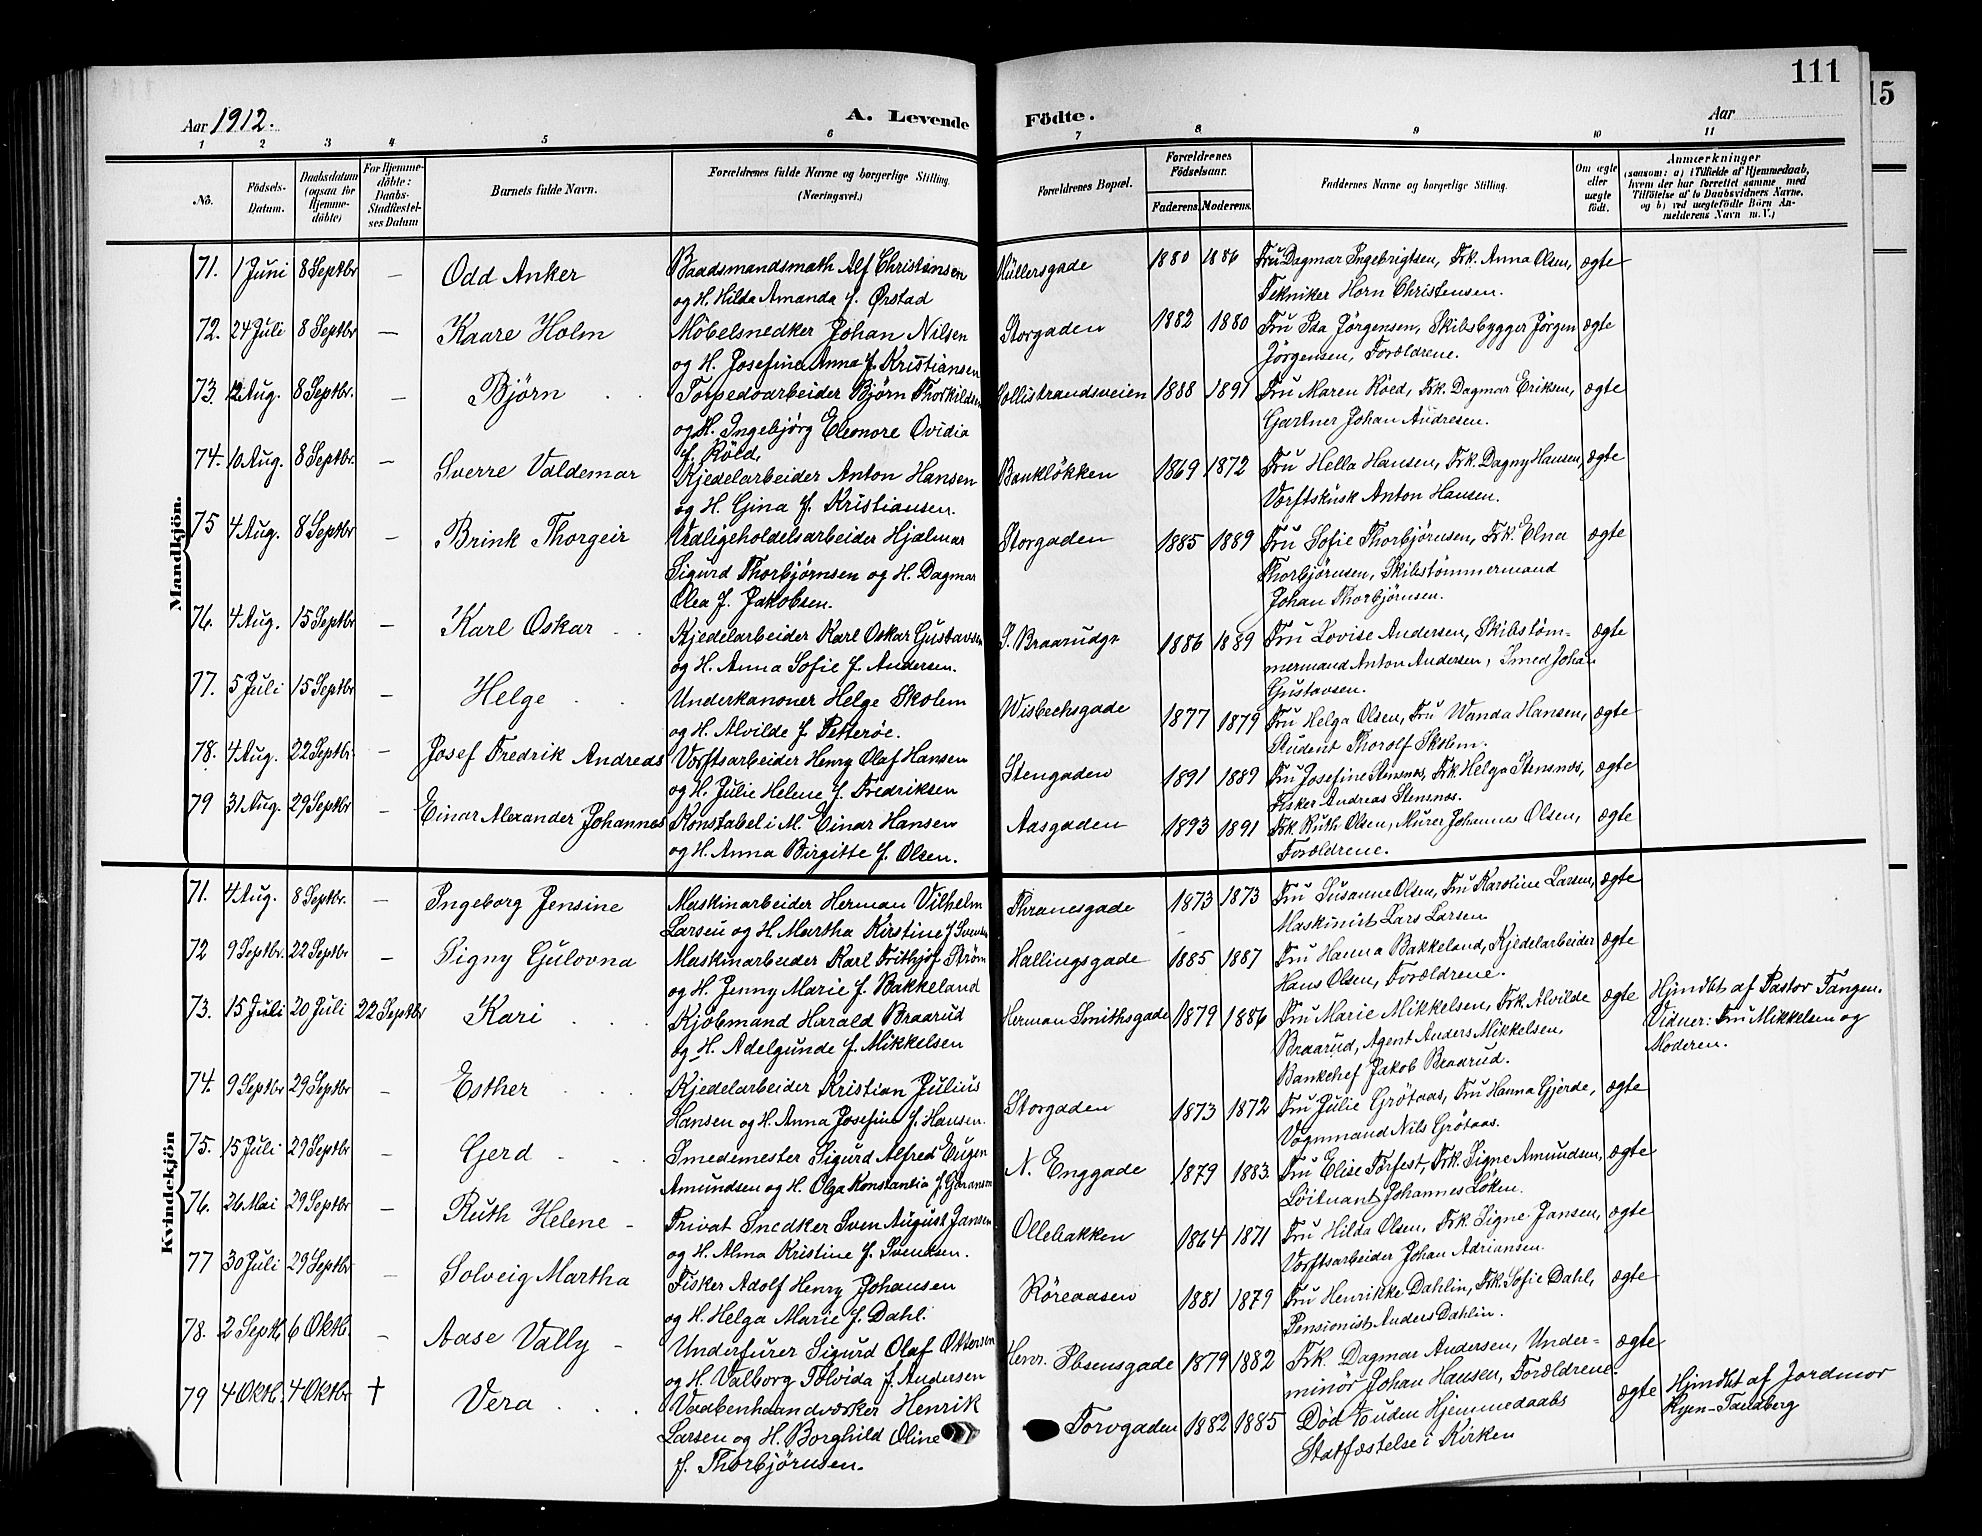 111
15
Aar 1912.
A. Levende Födte.
Aar
1 2 3 4 5 6 7 8 9 10 11
No.
Födsels-Datum.
Daabsdatum (ogsaa for Hjemme-döbte)
For Hjemme-döbte: Daabs-Stadfæstel-ses Datum
Barnets fulde Navn.
Forældrenes fulde Navne og borgerlige Stilling. (Næringsvei.)
Forældrenes Bopæl.
Forældrenes Födselsaar.
Faderens. Moderens.
Faddernes Navne og borgerlige Stilling.
Om ægte eller uægte født.
Anmærkninger
(saasom: a) i Tilfælde af Hjemmedaab, hvem der har forrettet samme med Tilföielse af to Daabsvidners Navne. og b) ved uægtefödte Börn An-melderens Navn m. V.)
Mandkjön.
71. 1 Juni 8 Septbr – Odd Anker Baadsmandsmath Alf Christensen Müllersgade 1880 1886 Fru Dagmar Ingebrigtsen, Frk. Anna Olsen, ægte
og H. Hilda Amanda f. Ørstad Tekniker Horn Christensen.
72. 24 Juli 8 Septbr – Kaare Holm Möbelsnedker Johan Nilsen Storgaden 1882 1880 Fru Ida Jörgensen, Skibsbygger Jörgen ægte
og H. Josefine Anna f. Kristiansen Jörgensen, Forældrene.
73. 12 Aug. 8 Septbr. – Björn Torpedoarbeider Bjørn Thorkildsen Rollistrandsveien 1888 1891 Fru Maren Röed, Frk. Dagmar Eriksen, ægte
og H. Ingebjørg Eleonore Ovidia Gartner Johan Andresen.
f. Röld,
74. 10 Aug. 8 Septbr. – Sverre Valdemar Kjedelarbeider Anton Hansen Bankløkken 1869 1872 Fru Hella Hansen, Frk. Dagny Hansen, ægte
og H. Gina f. Kristiansen. Værftskusk Anton Hansen.
75 4 Aug. 8 Septbr – Brink Thorgeir Vedligeholdelsarbeider Hjalmar Storgaden 1885 1889 Fru Sofie Thorbjørnsen, Frk. Elna ægte
Sigurd Thorbjørnsen og H. Dagmar Thorbjørnsen, Skibstømmermand
Olea f. Jakobsen. Johan Thorbjørnsen.
76. 4 Aug. 15 Septbr – Karl Oskar Kjedelarbeider Karl Oskar Gustavsen S. Braarudgr 1886 1889 Fru Lovise Andersen, Skibstøm- ægte
og H. Anna Sofie f. Andersen. mermand Anton Andersen, Smed Johan
Gustavsen.
77. 5 Juli 15 Septbr – Helge Underkanoner Helge Skolem Wisbechsgade 1877 1879 Fru Helga Olsen, Fru Wanda Hansen, ægte
og H. Alvilde f. Petterøe. Student Thorolf Skolem.
78. 4 Aug. 22 Septbr – Josef Fredrik Andreas Værftsarbeider Henry Olaf Hansen Stengaden 1891 1889 Fru Josefine Stensnæs, Frk. Helga Stensnæs, ægte
og H. Julie Helene f. Fredriksen Fisker Andreas Stensnæs.
79 31 Aug. 29 Septbr – Einar Alexander Johannes Konstabel i M. Einar Hansen Aasgaden 1893 1891 Frk. Ruth Olsen, Murer Johannes Olsen, ægte
og H. Anna Birgitte f. Olsen. Forældrene.
Kvindekjön
71. 4 Aug. 8 Septbr. – Ingeborg Jensine Maskinarbeider Herman Vilhelm Thranesgade 1873 1873 Fru Susanne Olsen, Fru Karoline Larsen, ægte
Larsen og H. Martha Kirstine f. Svensen Maskinist Lars Larsen
72 9 Septbr. 22 Septbr – Signy Gulovna Maskinarbeider Karl Frithjof Strøm Hallingsgade 1885 1887 Fru Hanna Bakkeland, Kjedelarbeider ægte
og H. Jenny Marie f. Bakkeland Hans Olsen, Forældrene.
73. 15 Juli 20 Juli 22 Septbr Kari Kjöbmand Harald Braarud Herman Smithsgade 1879 1886 Fru Marie Mikkelsen, Frk. Alvilde ægte Hjmdbt af Pastor Tangen.
og H. Adelgunde f. Mikkelsen Braarud, Agent Anders Mikkelsen, Vidner: Fru Mikkelsen og
Bankchef Jakob Braarud. Moderen.
74. 9 Septbr 29 Septbr – Esther Kjedelarbeider Kristian Julius Storgaden 1873 1872 Fru Julie Grötaas, Fru Hanna Gjerde, ægte
Hansen og H. Anna Josefine f. Hansen. Vognmand Nils Grötaas.
75. 15 Juli 29 Septbr – Gerd Smedemester Sigurd Alfred Eugen N. Enggade 1879 1883. Fru Elise Forfest, Frk. Signe Amundsen, ægte
Amundsen og H. Olga Konstantia f. Göransen Löitnant Johannes Løken.
76. 26 Mai 29 Septbr – Ruth Helene – Privat Snedker Sven August Jansen Ollebakken 1864 1871 Fru Hilda Olsen, Frk. Signe Jansen, ægte
og H. Alma Kristine f. Svendsen. Værftsarbeider Johan Adriansen.
77 30 Juli 29 Septbr – Solveig Martha Fisker Adolf Henry Johansen Röreaasen 1881 1879 Fru Henrikke Dahlin, Frk. Sofie Dahl, ægte
og H. Helga Marie f. Dahl. Pensionist Anders Dahlin.
78. 2 Septb. 6 Oktb. – Aase Vally – Underfurer Sigurd Olaf Ottersen Henr. Ibsensgade 1879 1882 Frk. Dagmar Andersen, Under- ægte
og H. Valborg Tolvida f. Andersen minör Johan Hansen, Forældrene.
79 4 Oktb. 4 Oktbr † Vera Vaabenhaandværker Henrik Torvgaden 1882 1885 Död uden Hjemmedaabs ægte Hjmdbt af Jordmor
Larsen og H. Borghild Oline Statfæstelse i Kirken Ryen-Tandberg
f. Thorbjörnsen.